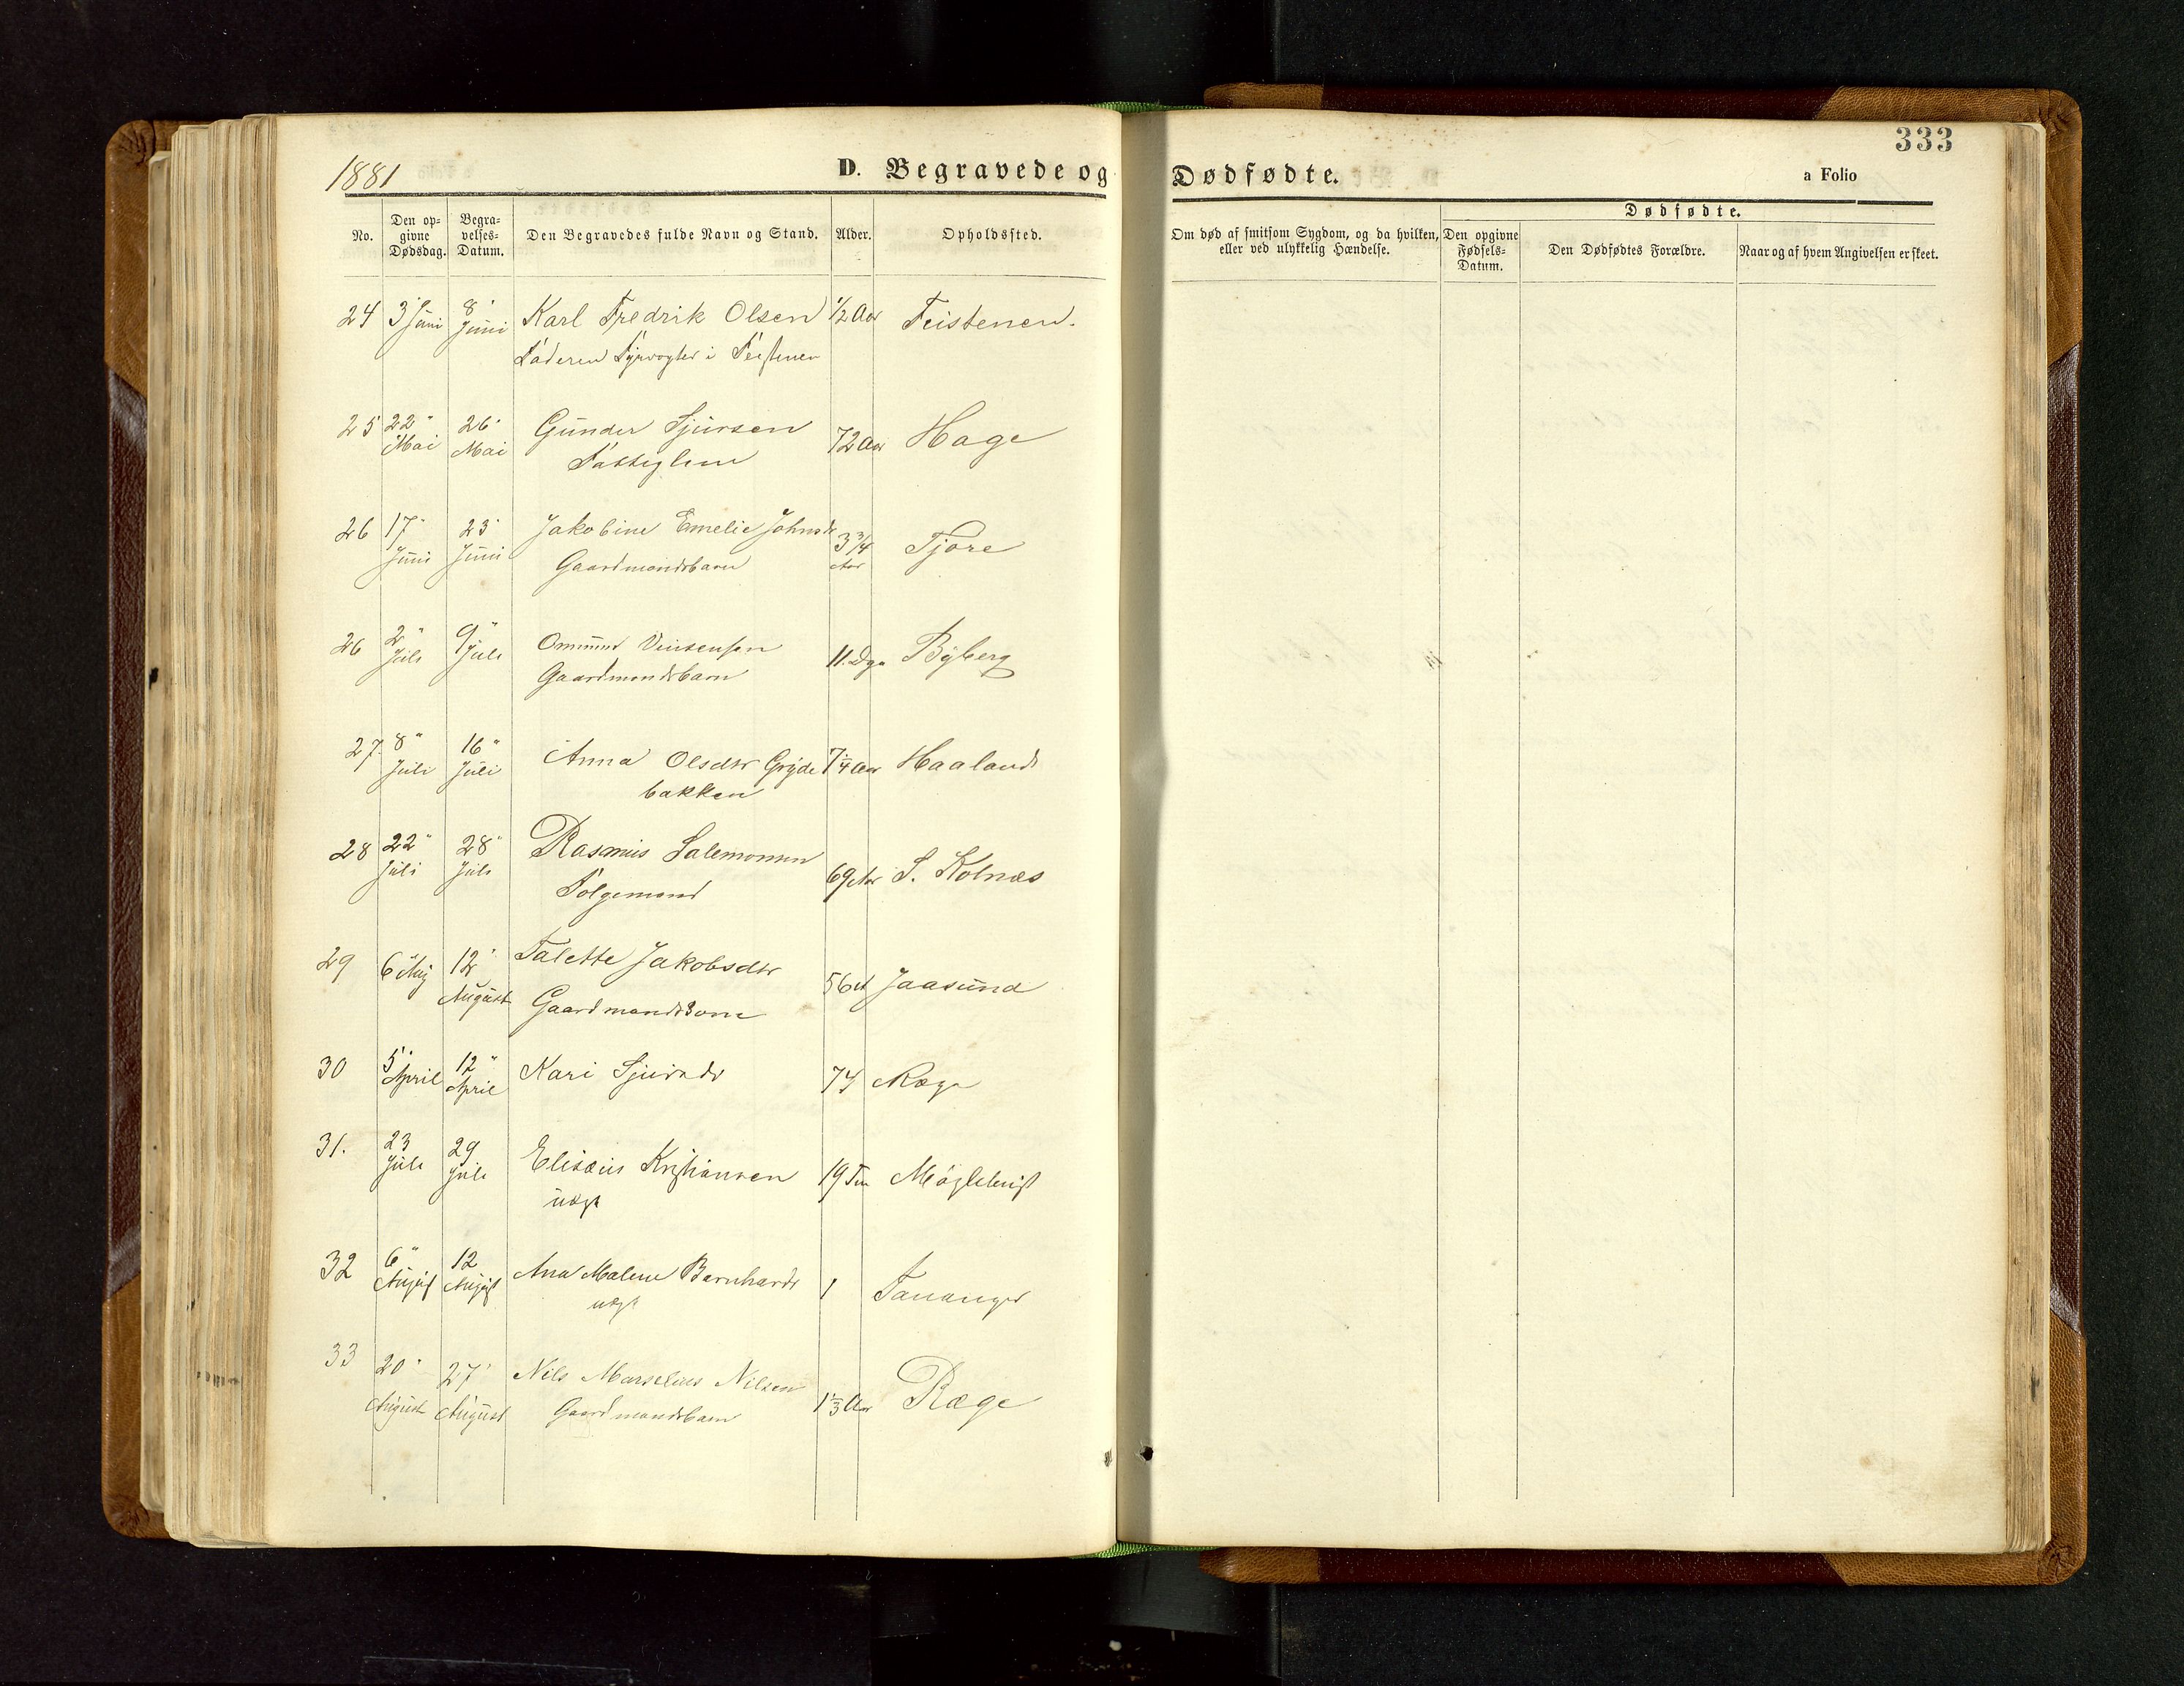 333
1881
D. Begravede og Dødfødte.
a Folio
No.
Den opgivne Dødsdag.
Begravelses-Datum.
Den Begravedes fulde Navn og Stand.
Alder.
Opholdssted.
Om død af smitsom Sygdom, og da hvilken, eller ved ulykkelig Hændelse.
Dødfødte.
Den opgivne Fødsels-Datum.
Den Dødfødtes Forældre.
Naar og af hvem Angivelsen er skeet.
24 3 Juni 8 Juni Karl Fredrik Olsen 1/2 Aar Feistenen.
Faderen Fyrvogter i Feistenen
25 22 Mai 26 Mai Gunder Sjursen 72 Aar Hage
Fattiglem
26 17 Juni 23 Juni Jakobine Emelie Johnsdr 3 3/4 Aar Tjore
Gaardmandsbarn
26 2" Juli 9" Juli Ommund Vinsensen 11. Dge Byberg
Gaardmandsbarn
27. 8" Juli 16" Juli Anna Olsdtr Gryde 7 1/4 Aar Haaland
bakken
28 22" Juli 28" Juli Rasmus Salemonsen 69 Aar S. Kolnæs
Folgemand
29 6 Aug 12 August Talette Jakobsdtr 56 A Jaasund
Gaardmandskone
30 5 April 12" April Kari Sjursdr 74 Ræge
31. 23 Juli 29 Juli Elisæus Kristiansen 19 Tim
uægt
32 6" August 12 August Ana Malene Barnhards 1 Tananger
uægt
33 20 August 27 August Nils Marselius Nilsen 1 1/3 Aar Ræge
Gaardmandsbarn